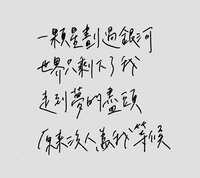 一顆星劃過銀河
世界只剩下了我
走到夢的盡頭
原來沒人為我等候